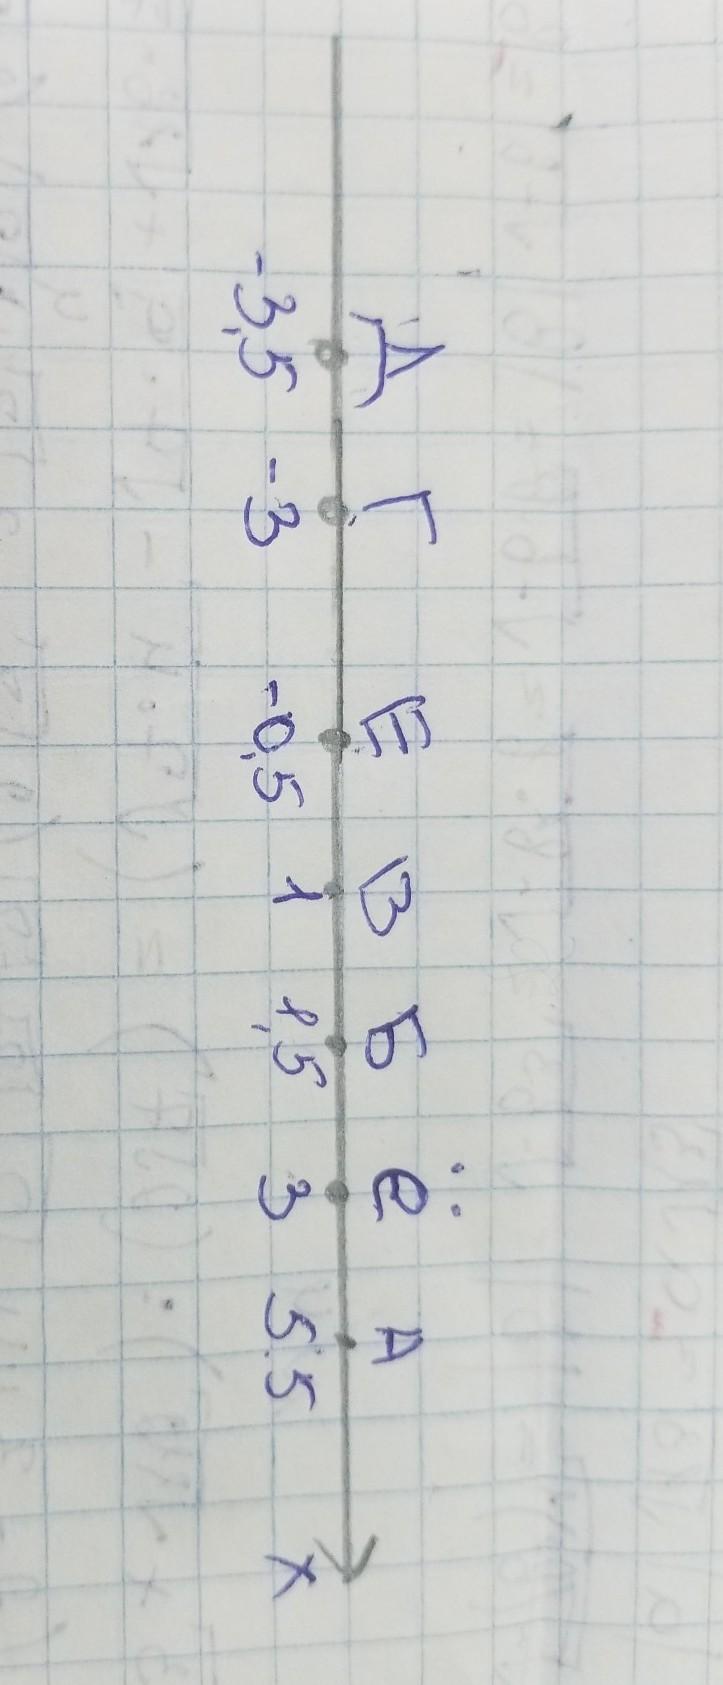 Д Г Е В Б ё А
-3,5 -3 -0,5 1 1,5 3 5.5 х